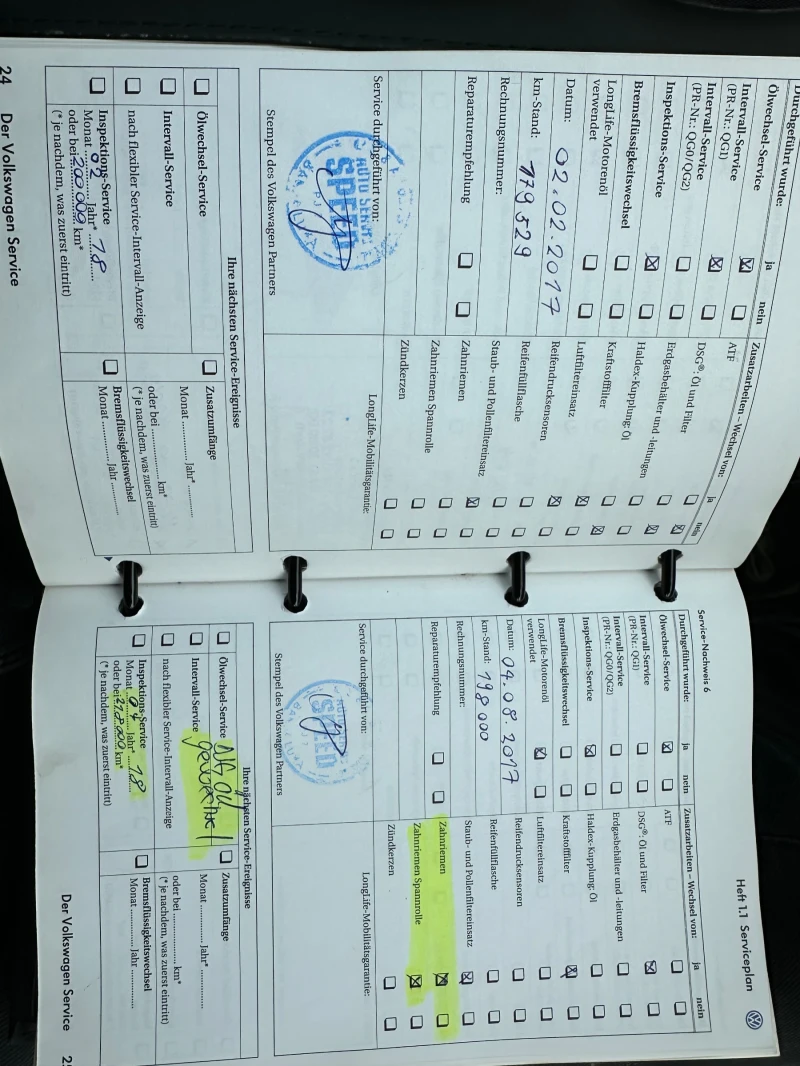 Durchgeführt wurde:
ja
nein
Ölwechsel-Service
Intervall-Service
(PR-Nr.: QG1)
Intervall-Service
(PR-Nr.: QG0/QG2)
Inspektions-Service
Bremsflüssigkeitswechsel
LongLife-Motorenöl
verwendet
Datum: 02.02.2017
km-Stand: 179 529
Rechnungsnummer:
Reparaturempfehlung
Service durchgeführt von:
AUTO SERVI
SPEED
Stempel des Volkswagen Partners
Zusatzarbeiten – Wechsel von:
ja
nein
ATF
DSG®: Öl und Filter
Erdgasbehälter und -leitungen
Haldex-Kupplung: Öl
Kraftstofffilter
Luftfiltereinsatz
Reifendrucksensoren
Reifenfüllflasche
Staub- und Pollenfiltereinsatz
Zahnriemen
Zahnriemen Spannrolle
Zündkerzen
LongLife-Mobilitätsgarantie:
Ihre nächsten Service-Ereignisse
Ölwechsel-Service
Intervall-Service
nach flexibler Service-Intervall-Anzeige
Inspektions-Service
Monat 02 Jahr* 18
oder bei 200 000 km*
(* je nachdem, was zuerst eintritt)
Zusatzumfänge
Monat ............ Jahr* ............
oder bei ............ km*
(* je nachdem, was zuerst eintritt)
Bremsflüssigkeitswechsel
Monat ............ Jahr ............
24 Der Volkswagen Service
Heft 1.1 Serviceplan
Service-Nachweis 6
Durchgeführt wurde:
ja
nein
Ölwechsel-Service
Intervall-Service
(PR-Nr.: QG1)
Intervall-Service
(PR-Nr.: QG0/QG2)
Inspektions-Service
Bremsflüssigkeitswechsel
LongLife-Motorenöl
verwendet
Datum: 04.08.2017
km-Stand: 198 000
Rechnungsnummer:
Reparaturempfehlung
Service durchgeführt von:
SPEED
Stempel des Volkswagen Partners
Zusatzarbeiten – Wechsel von:
ja
nein
ATF
DSG®: Öl und Filter
Erdgasbehälter und -leitungen
Haldex-Kupplung: Öl
Kraftstofffilter
Luftfiltereinsatz
Reifendrucksensoren
Reifenfüllflasche
Staub- und Pollenfiltereinsatz
Zahnriemen
Zahnriemen Spannrolle
Zündkerzen
LongLife-Mobilitätsgarantie:
Ihre nächsten Service-Ereignisse
Ölwechsel-Service
Intervall-Service
nach flexibler Service-Intervall-Anzeige
Inspektions-Service
Monat Jahr* 18
oder bei km*
(* je nachdem, was zuerst eintritt)
Zusatzumfänge
Monat ............ Jahr* ............
oder bei ............ km*
(* je nachdem, was zuerst eintritt)
Bremsflüssigkeitswechsel
Monat ............ Jahr ............
Der Volkswagen Service